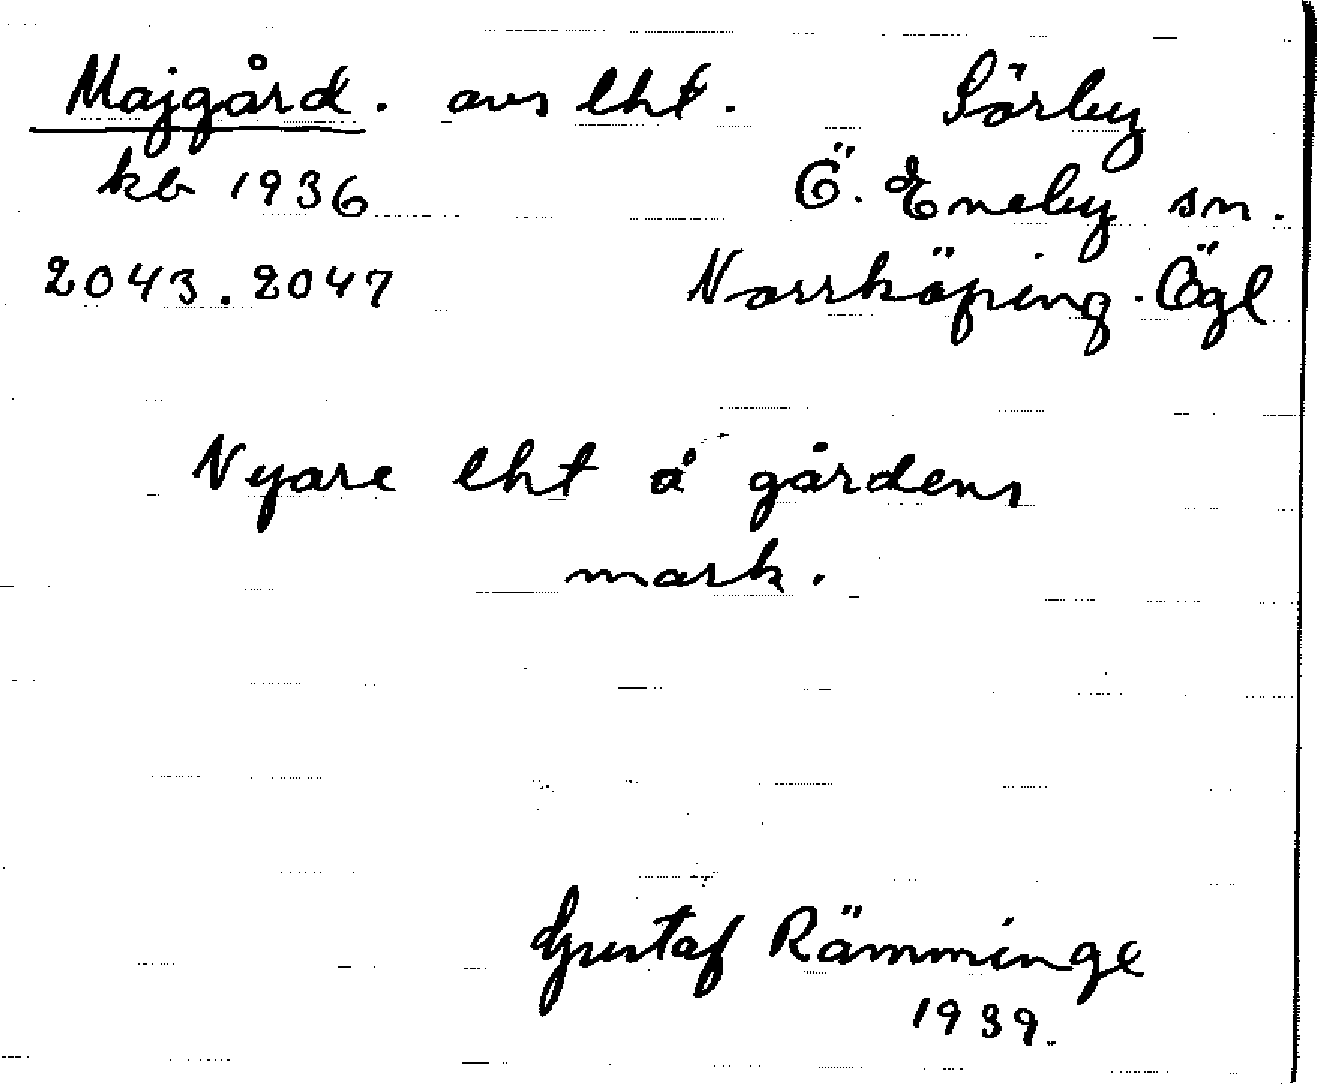 Majgård. avs lht. Sörby
kb 1936 Ö. Eneby sn.
2043. 2047 Norrköping. Ögl
Nyare lht å gårdens
mark.
Gustaf Rämminge
1939.